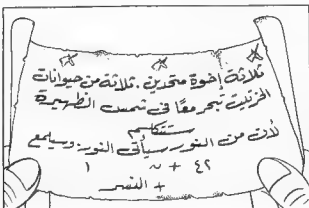 ثلاثة إخوة متحدين. ثلاثة من حيوانات
الخرتيت تبحر معًا فى شمس الظهيرة
ستتكلم
لأن من النور سيأتى النور: وسيلمع
+ النسر